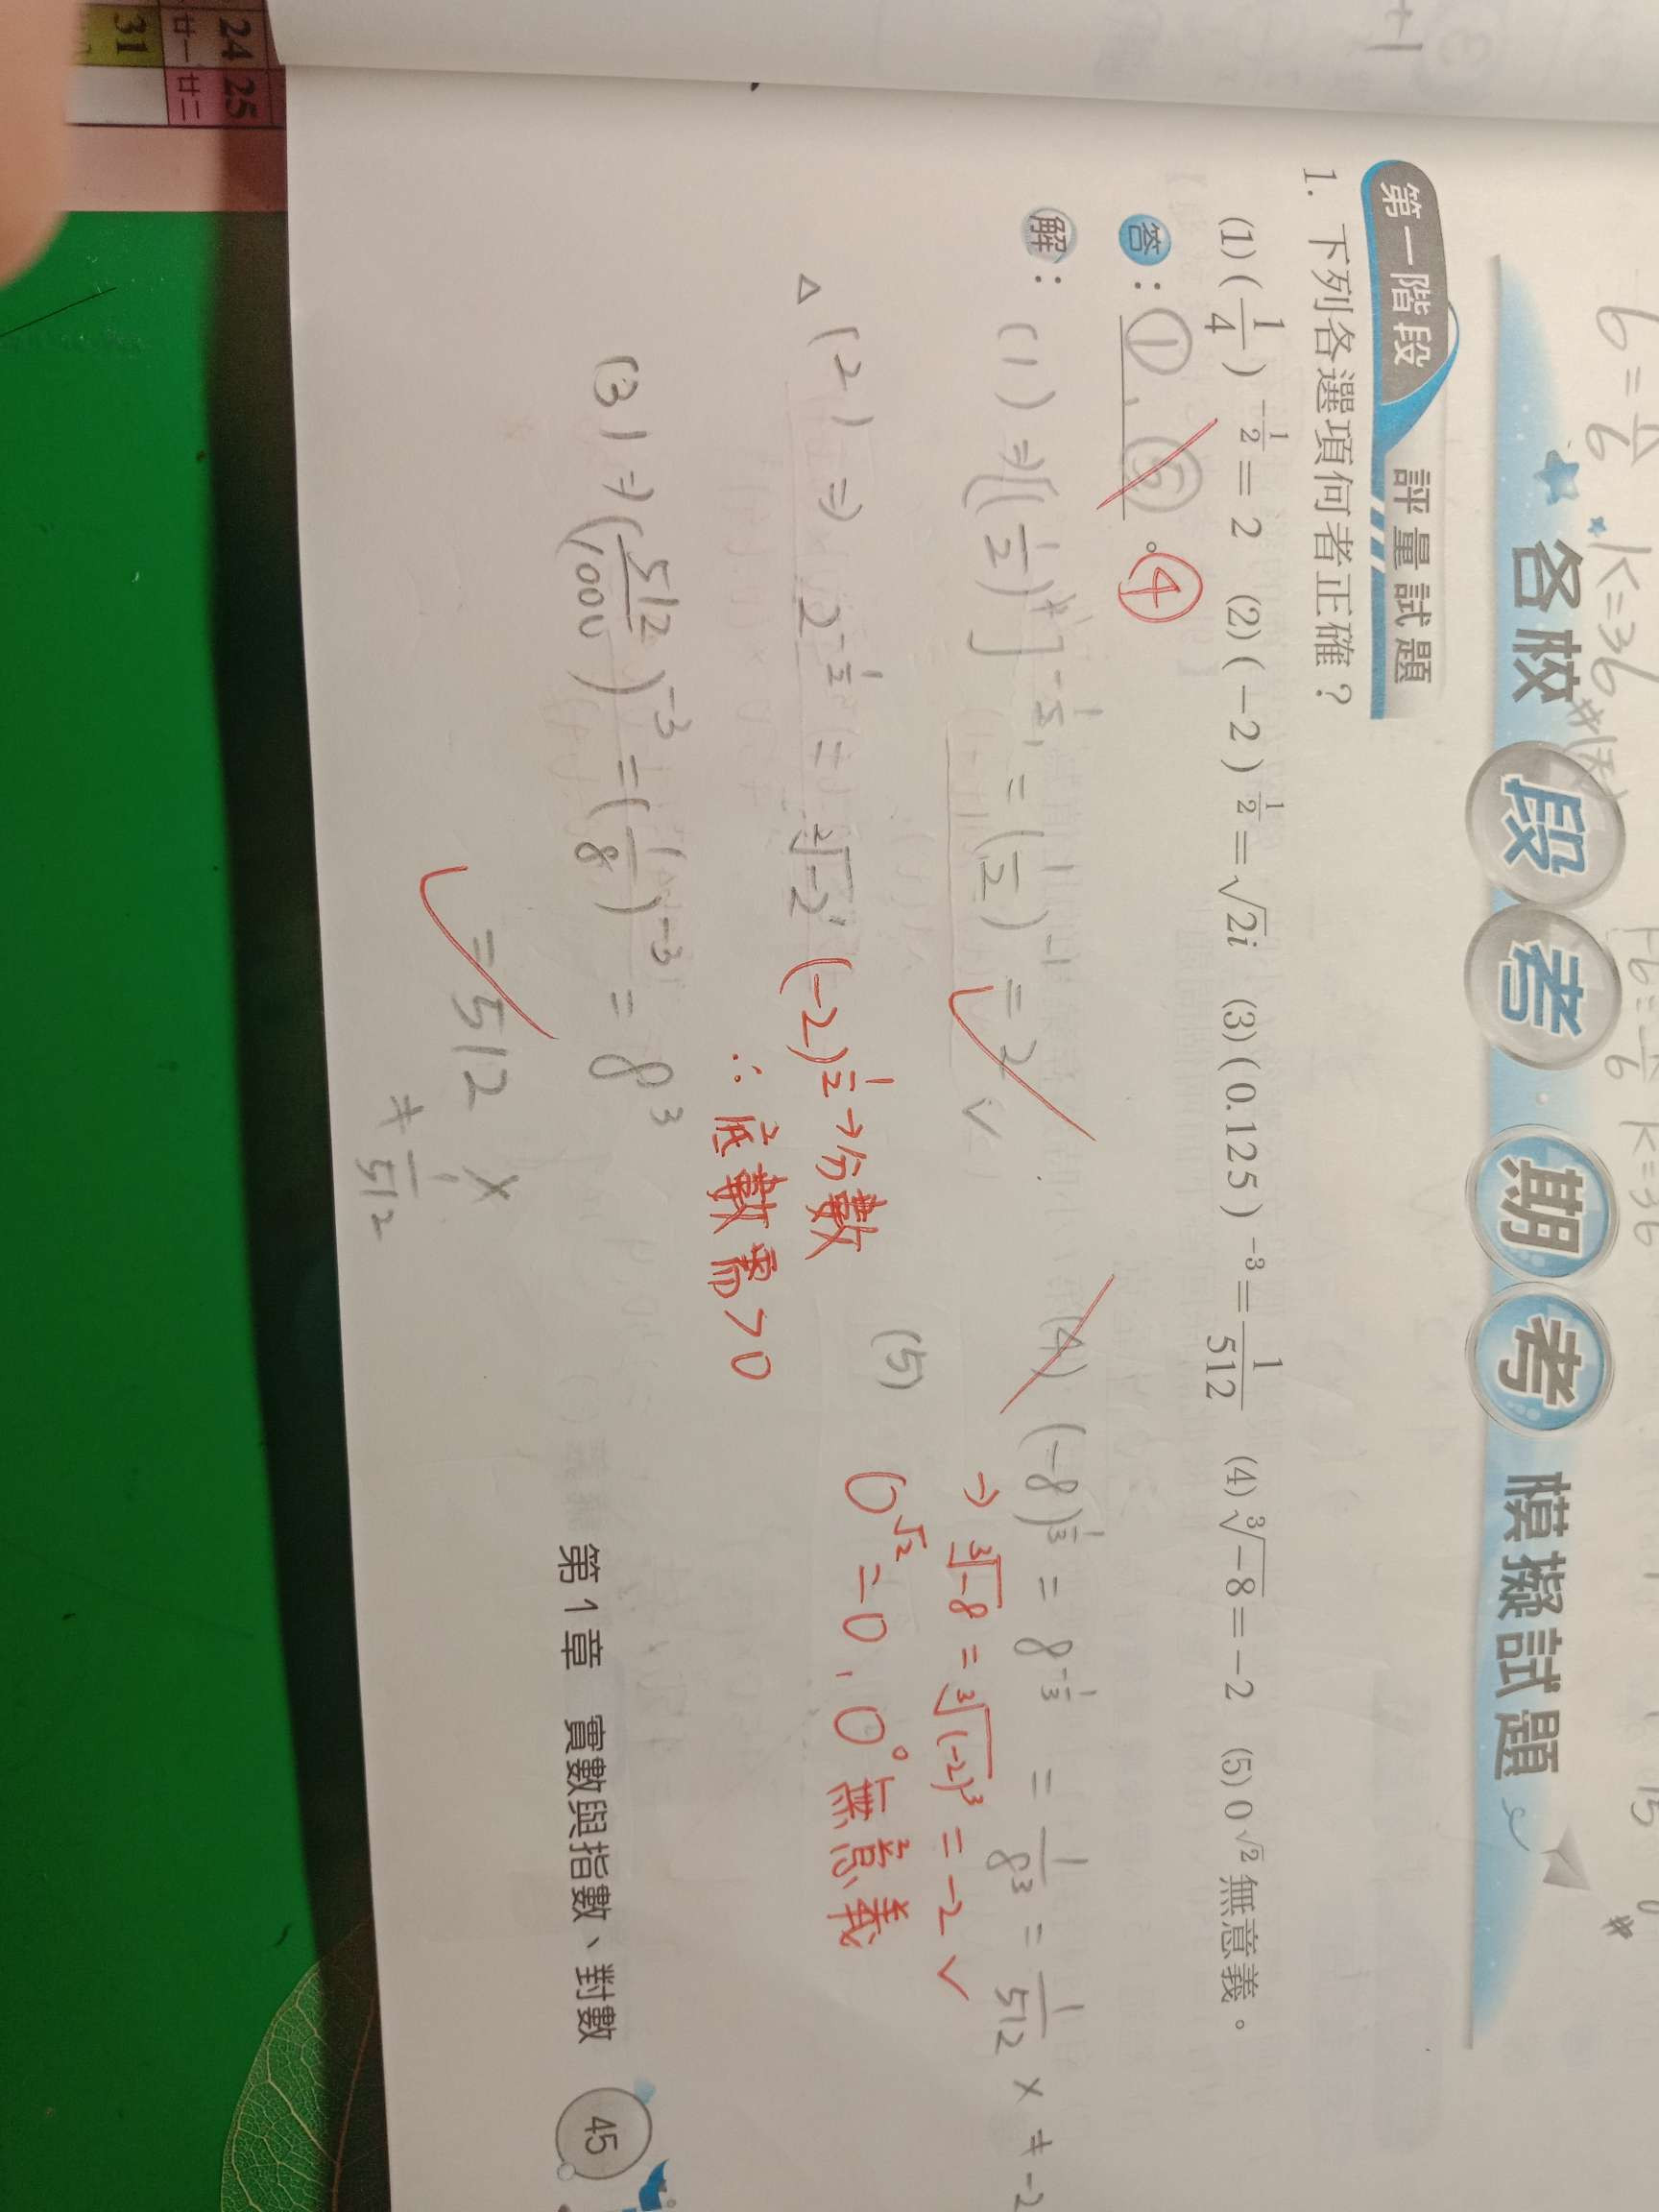 +1
b = k=36 #
k=36 #
各校 段考·期考 模擬試題
第一階段 評量試題
1. 下列各選項何者正確？
(1)(1/4)^{-1/2}=2 (2)(-2)^{1/2}=√2i (3)(0.125)^{-3}=1/512 (4)∛-8=-2 (5)0^{√2}無意義。
答：①,⑤。④
解：(1)⇒[(1/2)^2]^{-1/2}=(1/2)^{-1}=2 ✓
(4)(-8)^{1/3}=8^{-1/3}=1/8^3=1/512 × ≠-2
⇒∛-8=∛(-2)^3=-2 ✓
△(2)⇒2^{-1/2}=²√-2 (-2)^{1/2}→分數
∴底數需>0
(5) 0^{√2}=0,0^0無意義
(3)⇒(512/1000)^{-3}=(1/8)^{-3}=8^3
=512 ×
≠1/512
第1章 實數與指數、對數 45
24 25
廿一 廿二
31